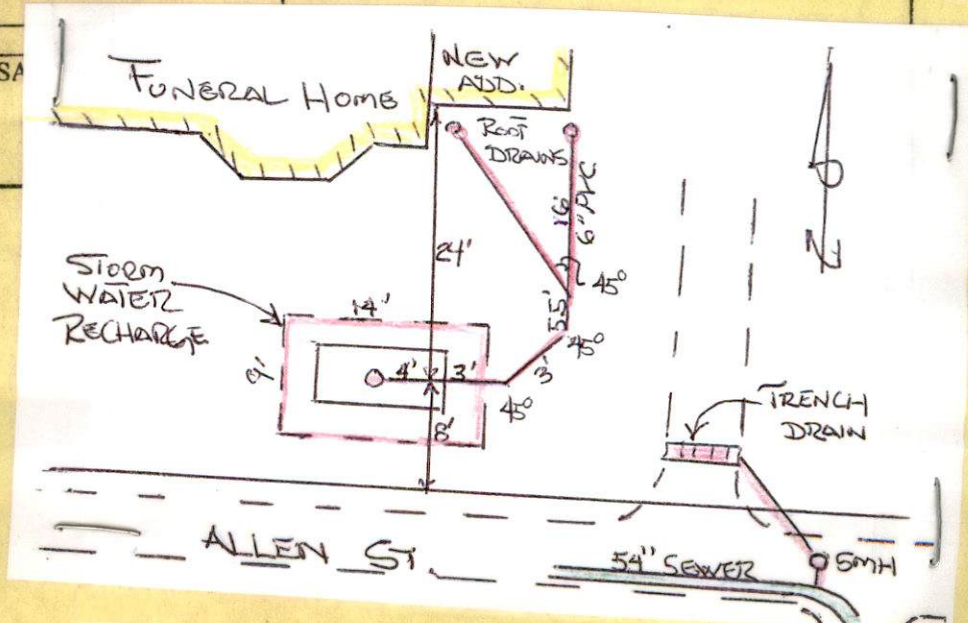 SA
FUNERAL HOME
NEW
ADD.
ROOF
DRAINS
16'
6" PVC
45°
5.5'
45°
3'
45°
24'
STORM
WATER
RECHARGE
14'
9'
4'
3'
8'
TRENCH
DRAIN
ALLEN ST.
54" SEWER
SMH
N